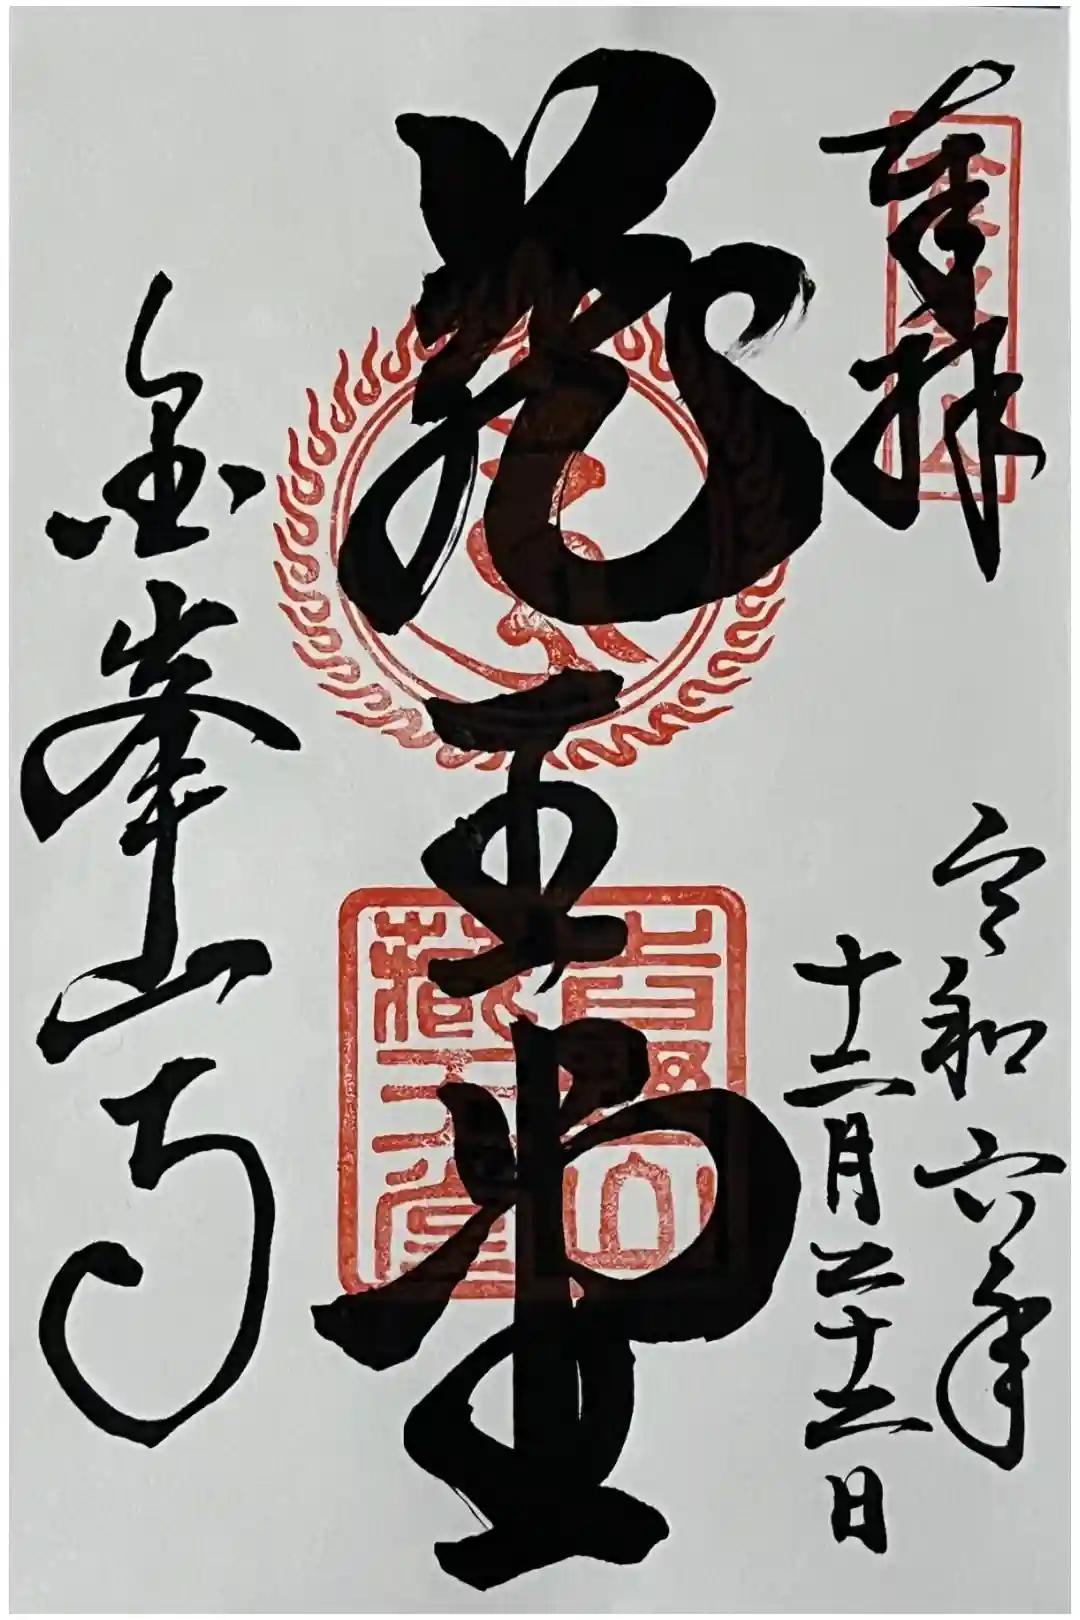 奉拝
令和六年
十二月二十二日
蔵王堂
吉野山
藏王堂
金峯山寺